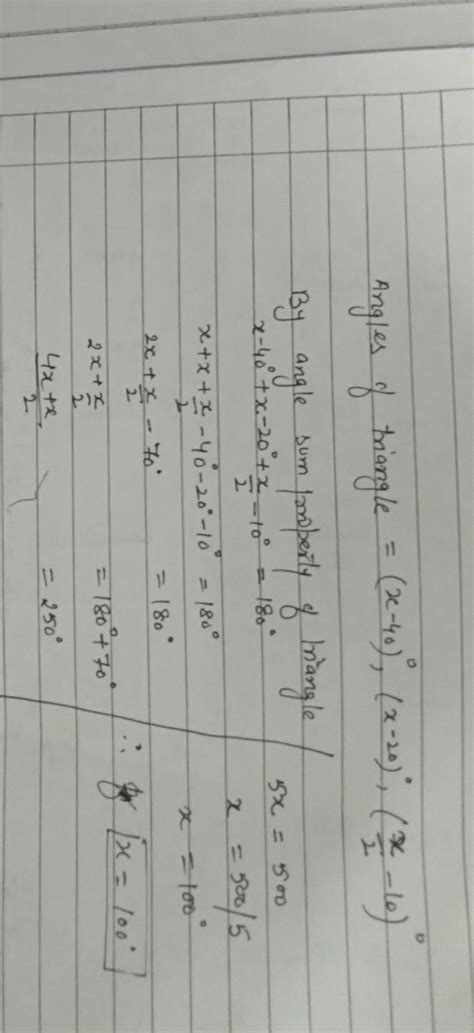 Angles of triangle = (x-40)°, (x-20)°, (x/2 - 10)°
By angle sum property of triangle
x-40°+x-20°+x/2-10° = 180°
x+x+x/2-40°-20°-10° = 180°
2x+x/2-70° = 180°
2x+x/2 = 180°+70°
4x+x/2 = 250°
5x = 500
x = 500/5
x = 100°
∴ x = 100°